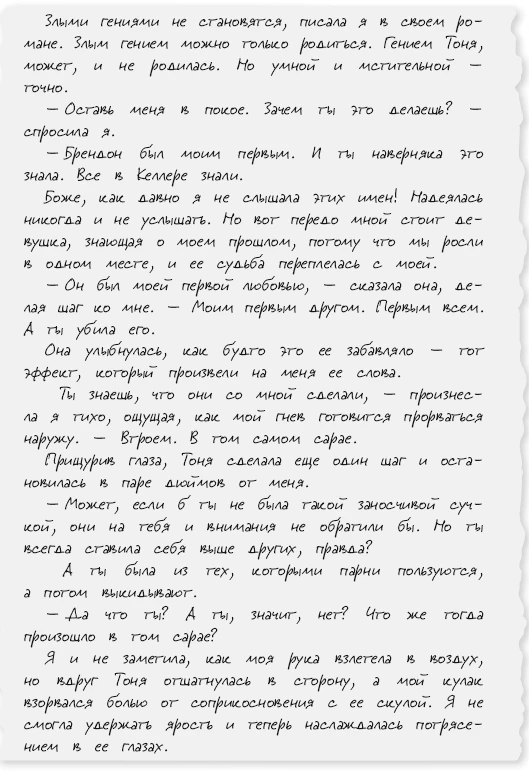 Злыми гениями не становятся, писала я в своем ро-
мане. Злым гением можно только родиться. Гением Тоня,
может, и не родилась. Но умной и мстительной —
точно.
— Оставь меня в покое. Зачем ты это делаешь? —
спросила я.
— Брендон был моим первым. И ты наверняка это
знала. Все в Келлере знали.
Боже, как давно я не слышала этих имен! Надеялась
никогда и не услышать. Но вот передо мной стоит де-
вушка, знающая о моем прошлом, потому что мы росли
в одном месте, и ее судьба переплелась с моей.
— Он был моей первой любовью, — сказала она, де-
лая шаг ко мне. — Моим первым другом. Первым всем.
А ты убила его.
Она улыбнулась, как будто это ее забавляло — тот
эффект, который произвели на меня ее слова.
Ты знаешь, что они со мной сделали, — произнес-
ла я тихо, ощущая, как мой гнев готовится прорваться
наружу. — Втроем. В том самом сарае.
Прищурив глаза, Тоня сделала еще один шаг и оста-
новилась в паре дюймов от меня.
— Может, если б ты не была такой заносчивой суч-
кой, они на тебя и внимания не обратили бы. Но ты
всегда ставила себя выше других, правда?
А ты была из тех, которыми парни пользуются,
а потом выкидывают.
— Да что ты? А ты, значит, нет? Что же тогда
произошло в том сарае?
Я и не заметила, как моя рука взлетела в воздух,
но вдруг Тоня отшатнулась в сторону, а мой кулак
взорвался болью от соприкосновения с ее скулой. Я не
смогла удержать ярость и теперь наслаждалась потрясе-
нием в ее глазах.